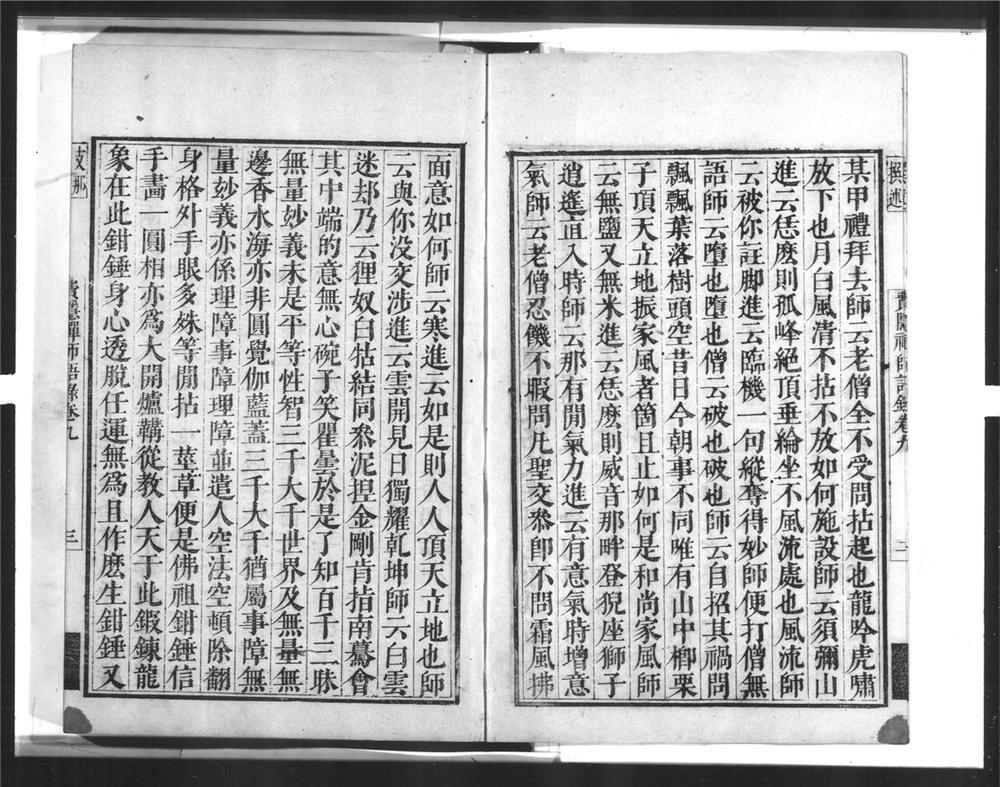 撰述
費隱禪師語錄卷九
二
某甲禮拜去師云老僧全不受問拈起也龍吟虎嘯
放下也月白風清不拈不放如何施設師云須彌山
進云恁麽則孤峰絕頂垂綸坐不風流處也風流師
云被你註脚進云臨機一句縱奪得妙師便打僧無
語師云墮也墮也僧云破也破也師云自招其禍問
飄飄葉落樹頭空昔日今朝事不同唯有山中榔栗
子頂天立地振家風者箇且止如何是和尚家風師
云無鹽又無米進云恁麽則威音那畔登猊座獅子
逍遙直入時師云那有閒氣力進云有意氣時增意
氣師云老僧忍饑不暇問凡聖交叅卽不問霜風拂
面意如何師云寒進云如是則人人頂天立地也師
云與你沒交涉進云雲開見日獨耀乾坤師云白雲
迷却乃云狸奴白牯結同叅泥捏金剛肯指南驀會
其中端的意無心碗子笑瞿曇於是了知百千三昧
無量妙義未是平等性智三千大千世界及無量無
邊香水海亦非圓覺伽藍蓋三千大千猶屬事障無
量妙義亦係理障事障理障並遣人空法空頓除翻
身格外手眼多殊等閒拈一莖草便是佛祖鉗錘信
手畵一圓相亦爲大開爐鞴從教人天于此鍛鍊龍
象在此鉗錘身心透脫任運無爲且作麽生鉗錘又
支那
費隱禪師語錄卷九
三